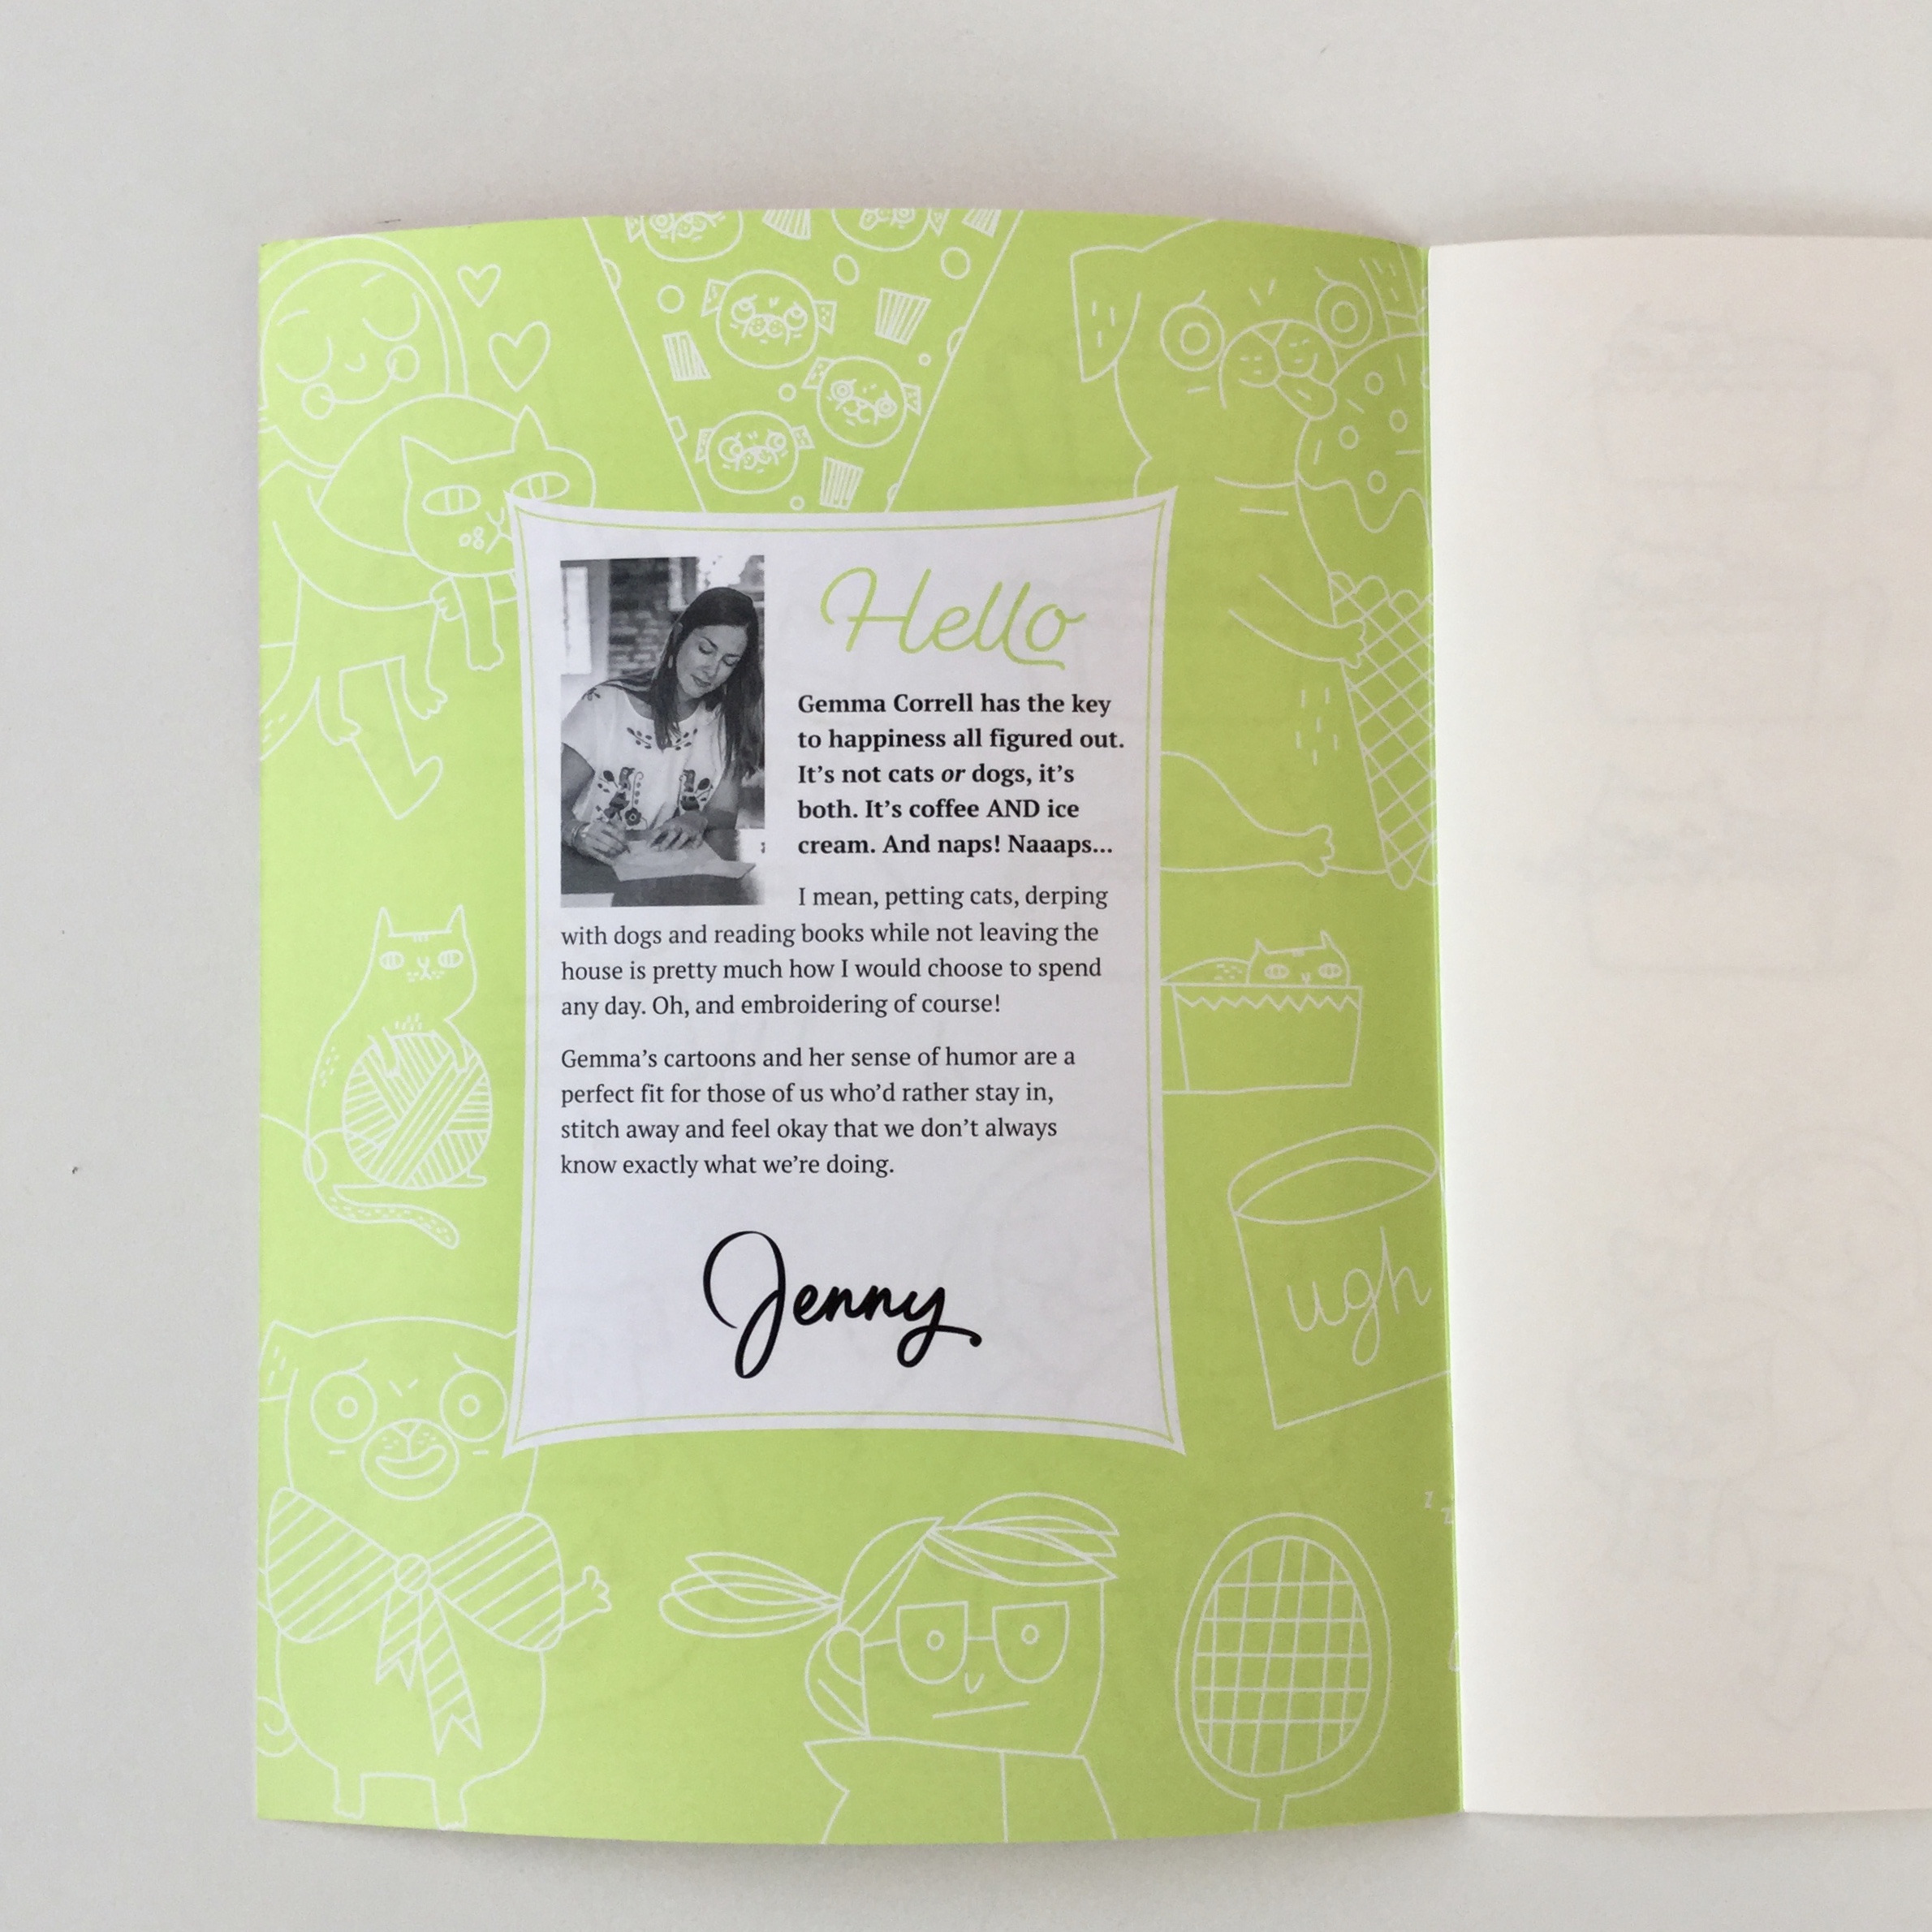 Hello
Gemma Correll has the key
to happiness all figured out.
It's not cats or dogs, it's
both. It's coffee AND ice
cream. And naps! Naaaps...
I mean, petting cats, derping
with dogs and reading books while not leaving the
house is pretty much how I would choose to spend
any day. Oh, and embroidering of course!
Gemma's cartoons and her sense of humor are a
perfect fit for those of us who'd rather stay in,
stitch away and feel okay that we don't always
know exactly what we're doing.
Jenny
ugh
z
z